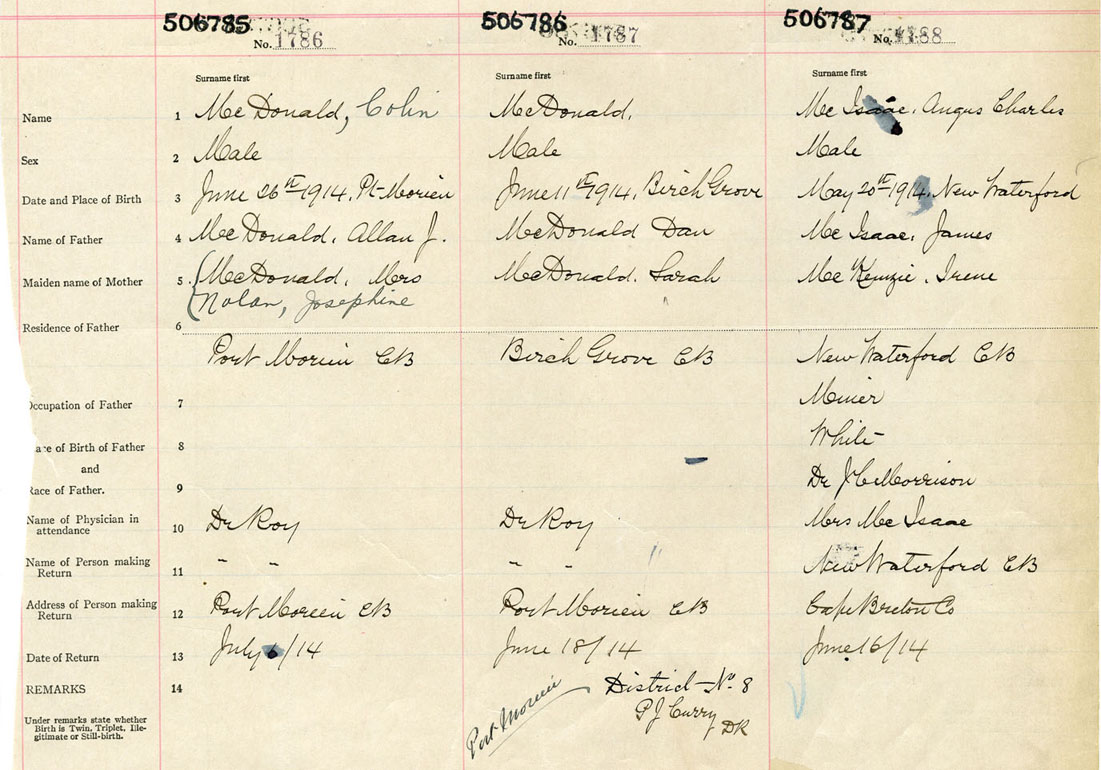 506785 506786 506787
No. 1786 No. 1787 No. 1788
Surname first Surname first Surname first
Name 1 McDonald, Colin McDonald, Mc Isaac, Angus Charles
Sex 2 Male Male Male
Date and Place of Birth 3 June 26th 1914, Pt Morien June 11th 1914, Birch Grove May 20th 1914, New Waterford
Name of Father 4 McDonald, Allan J. McDonald Dan Mc Isaac, James
Maiden name of Mother 5 McDonald, Mrs McDonald, Sarah Mc Kenzie, Irene
Nolan, Josephine
Residence of Father 6
Port Morien CB Birch Grove CB New Waterford CB
Occupation of Father 7 Miner
ace of Birth of Father 8 White
and
Race of Father. 9 Dr J C Morrison
Name of Physician in 10 Dr Roy Dr Roy Mrs Mc Isaac
attendance
Name of Person making 11 " " " " New Waterford CB
Return
Address of Person making 12 Port Morien CB Port Morien CB Cape Breton Co
Return
Date of Return 13 July 6/14 June 18/14 June 16/14
REMARKS 14 Port Morien District No. 8
P J Curry DR
Under remarks state whether
Birth is Twin, Triplet, Ille-
gitimate or Still-birth.